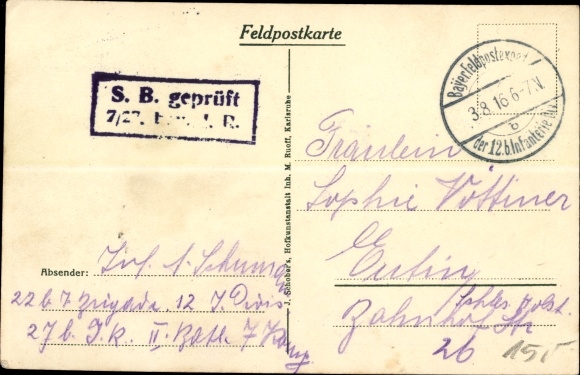 Feldpostkarte
S. B. geprüft
7/27. bay. I. R.
Bayer. Feldpostexped.
3.8.16 6-7.N.
b
der 12.b.Infanterie Div.
Fräulein
Sophie Vöttiner
Eutin
Schles. Holst.
Bahnhof Str
26
155
Absender: Inf. A. Schung
22 b I Brigade 12 I Divis
27 b. I. R. II. Batl. 7 Komp
J. Schober's, Hofkunstanstalt Inh. M. Ruoff, Karlsruhe